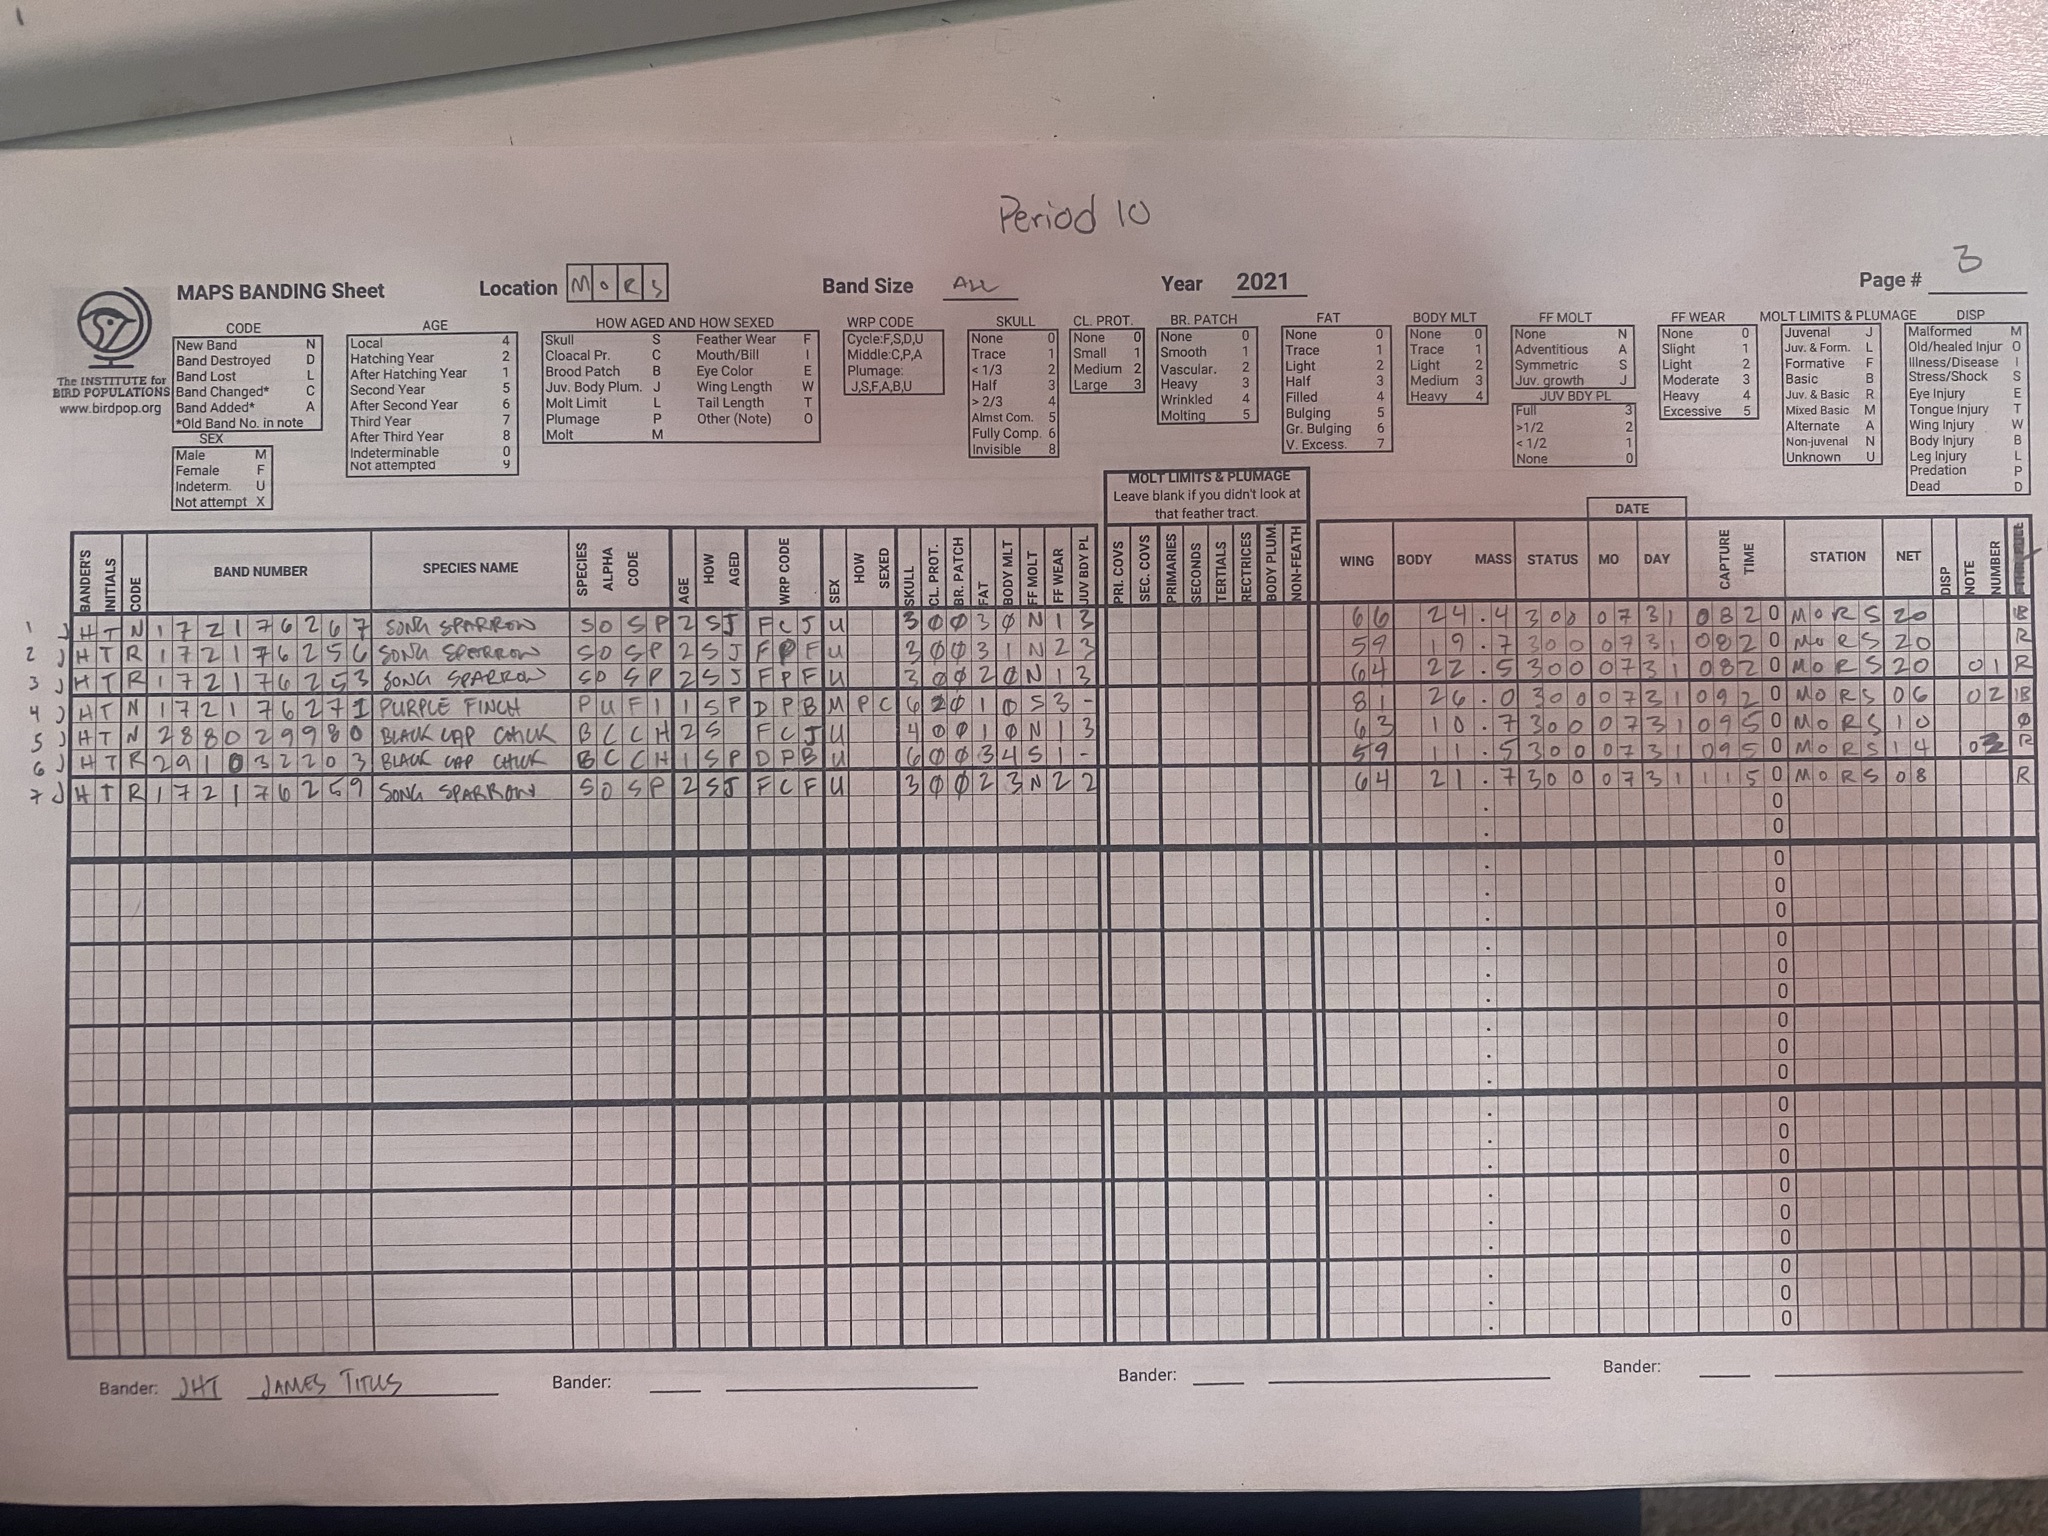 Period 10
MAPS BANDING Sheet Location MORS Band Size ALL Year 2021 Page # 3
The INSTITUTE for BIRD POPULATIONS
www.birdpop.org
CODE
New Band N
Band Destroyed D
Band Lost L
Band Changed* C
Band Added* A
*Old Band No. in note
SEX
Male M
Female F
Indeterm. U
Not attempt X
AGE
Local 4
Hatching Year 2
After Hatching Year 1
Second Year 5
After Second Year 6
Third Year 7
After Third Year 8
Indeterminable 0
Not attempted 9
HOW AGED AND HOW SEXED
Skull S Feather Wear F
Cloacal Pr. C Mouth/Bill I
Brood Patch B Eye Color E
Juv. Body Plum. J Wing Length W
Molt Limit L Tail Length T
Plumage P Other (Note) O
Molt M
WRP CODE
Cycle:F,S,D,U
Middle:C,P,A
Plumage:
J,S,F,A,B,U
SKULL
None 0
Trace 1
< 1/3 2
Half 3
> 2/3 4
Almst Com. 5
Fully Comp. 6
Invisible 8
CL. PROT.
None 0
Small 1
Medium 2
Large 3
BR. PATCH
None 0
Smooth 1
Vascular. 2
Heavy 3
Wrinkled 4
Molting 5
FAT
None 0
Trace 1
Light 2
Half 3
Filled 4
Bulging 5
Gr. Bulging 6
V. Excess. 7
BODY MLT
None 0
Trace 1
Light 2
Medium 3
Heavy 4
FF MOLT
None N
Adventitious A
Symmetric S
Juv. growth J
JUV BDY PL
Full 3
>1/2 2
< 1/2 1
None 0
FF WEAR
None 0
Slight 1
Light 2
Moderate 3
Heavy 4
Excessive 5
MOLT LIMITS & PLUMAGE
Juvenal J
Juv. & Form. L
Formative F
Basic B
Juv. & Basic R
Mixed Basic M
Alternate A
Non-juvenal N
Unknown U
DISP
Malformed M
Old/healed Injur O
Illness/Disease I
Stress/Shock S
Eye Injury E
Tongue Injury T
Wing Injury W
Body Injury B
Leg Injury L
Predation P
Dead D
MOLT LIMITS & PLUMAGE
Leave blank if you didn't look at
that feather tract.
DATE
BANDER'S INITIALS CODE BAND NUMBER SPECIES NAME SPECIES ALPHA CODE AGE HOW AGED WRP CODE SEX HOW SEXED SKULL CL. PROT. BR. PATCH FAT BODY MLT FF MOLT FF WEAR JUV BDY PL PRI. COVS SEC. COVS PRIMARIES SECONDS TERTIALS RECTRICES BODY PLUM. NON-FEATH WING BODY MASS STATUS MO DAY CAPTURE TIME STATION NET DISP NOTE NUMBER
1 JHT N 172176267 SONG SPARROW SOSP 2 SJ FCJ U 3 0 0 3 0 N 1 3 66 24.4 300 07 31 0820 MORS 20 1B
2 JHT R 172176256 SONG SPARROW SOSP 2 SJ FPF U 3 0 0 3 1 N 2 3 59 19.7 300 07 31 0820 MORS 20 R
3 JHT R 172176253 SONG SPARROW SOSP 2 SJ FPF U 3 0 0 2 0 N 1 3 64 22.5 300 07 31 0820 MORS 20 01 R
4 JHT N 172176271 PURPLE FINCH PUFI 1 SP DPB M PC 6 2 0 1 0 S 3 - 81 26.0 300 07 31 0920 MORS 06 02 1B
5 JHT N 288029980 BLACK CAP CHICK BCCH 2 S FCJ U 4 0 0 1 0 N 1 3 63 10.7 300 07 31 0950 MORS 10 0
6 JHT R 291032203 BLACK CAP CHICK BCCH 1 SP DPB U 6 0 0 3 4 S 1 - 59 11.5 300 07 31 0950 MORS 14 R
7 JHT R 172176259 SONG SPARROW SOSP 2 SJ FCF U 3 0 0 2 3 N 2 2 64 21.7 300 07 31 1150 MORS 08 R
0
0
0
0
0
0
0
0
0
0
0
0
0
0
0
0
0
0
0
0
Bander: JHT JAMES TITUS Bander: Bander: Bander: